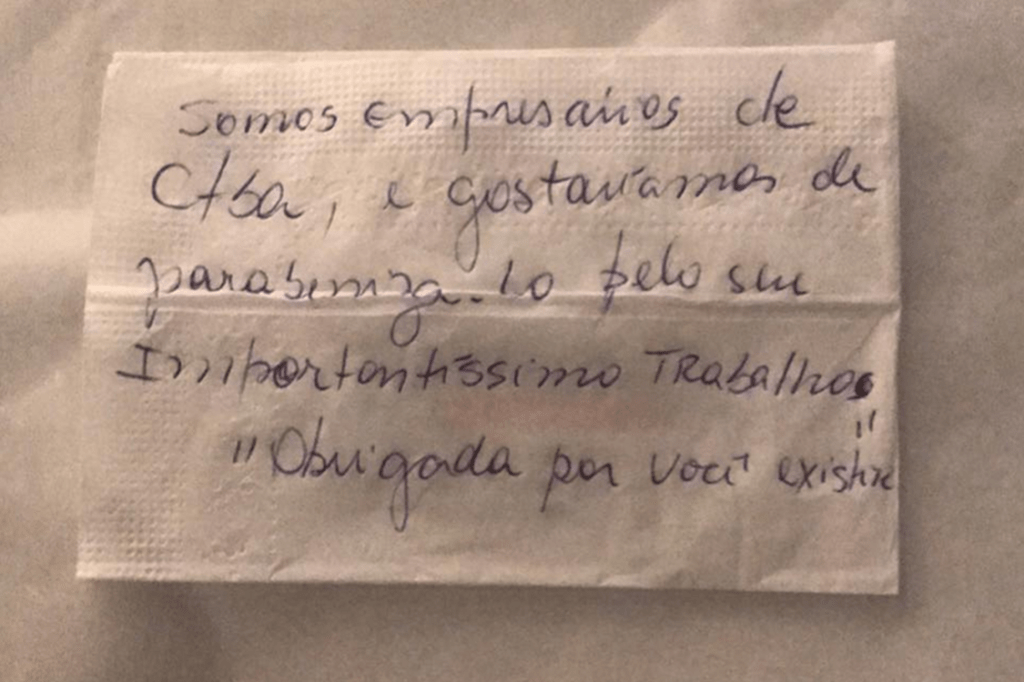 Somos empresários de
Ctba, e gostaríamos de
parabeniza-lo pelo seu
Importantíssimo Trabalho.
"Obrigada por você existir"